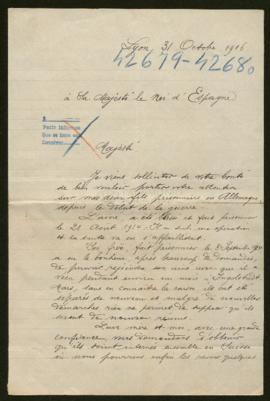 Lyon, 31 Octobre 1916
42679-42680
à Sa Majesté le Roi d'Espagne
Majesté
Je viens solliciter de votre bonté
de bien vouloir porter votre attention
sur mes deux fils prisonniers en Allemagne
depuis le début de la guerre.
L'aîné a été blessé et fait prisonnier
le 21 Août 1914. Il a subi une opération
et la santé va en s'affaiblissant.
Son frère, fait prisonnier le Septembre
a eu le bonheur, après beaucoup de demandes,
de pouvoir rejoindre son frère
pendant environ un mois à Ingolstadt
mais, sans en connaître la raison, ils ont été
séparés de nouveau et malgré de nouvelles
démarches rien ne permet de supposer qu'ils
seront de nouveau réunis.
Leur mère et moi, avec une grande
confiance, vous demandons d'obtenir
qu'ils soient internés ensemble en Suisse
où nous pourrions enfin les revoir quelques